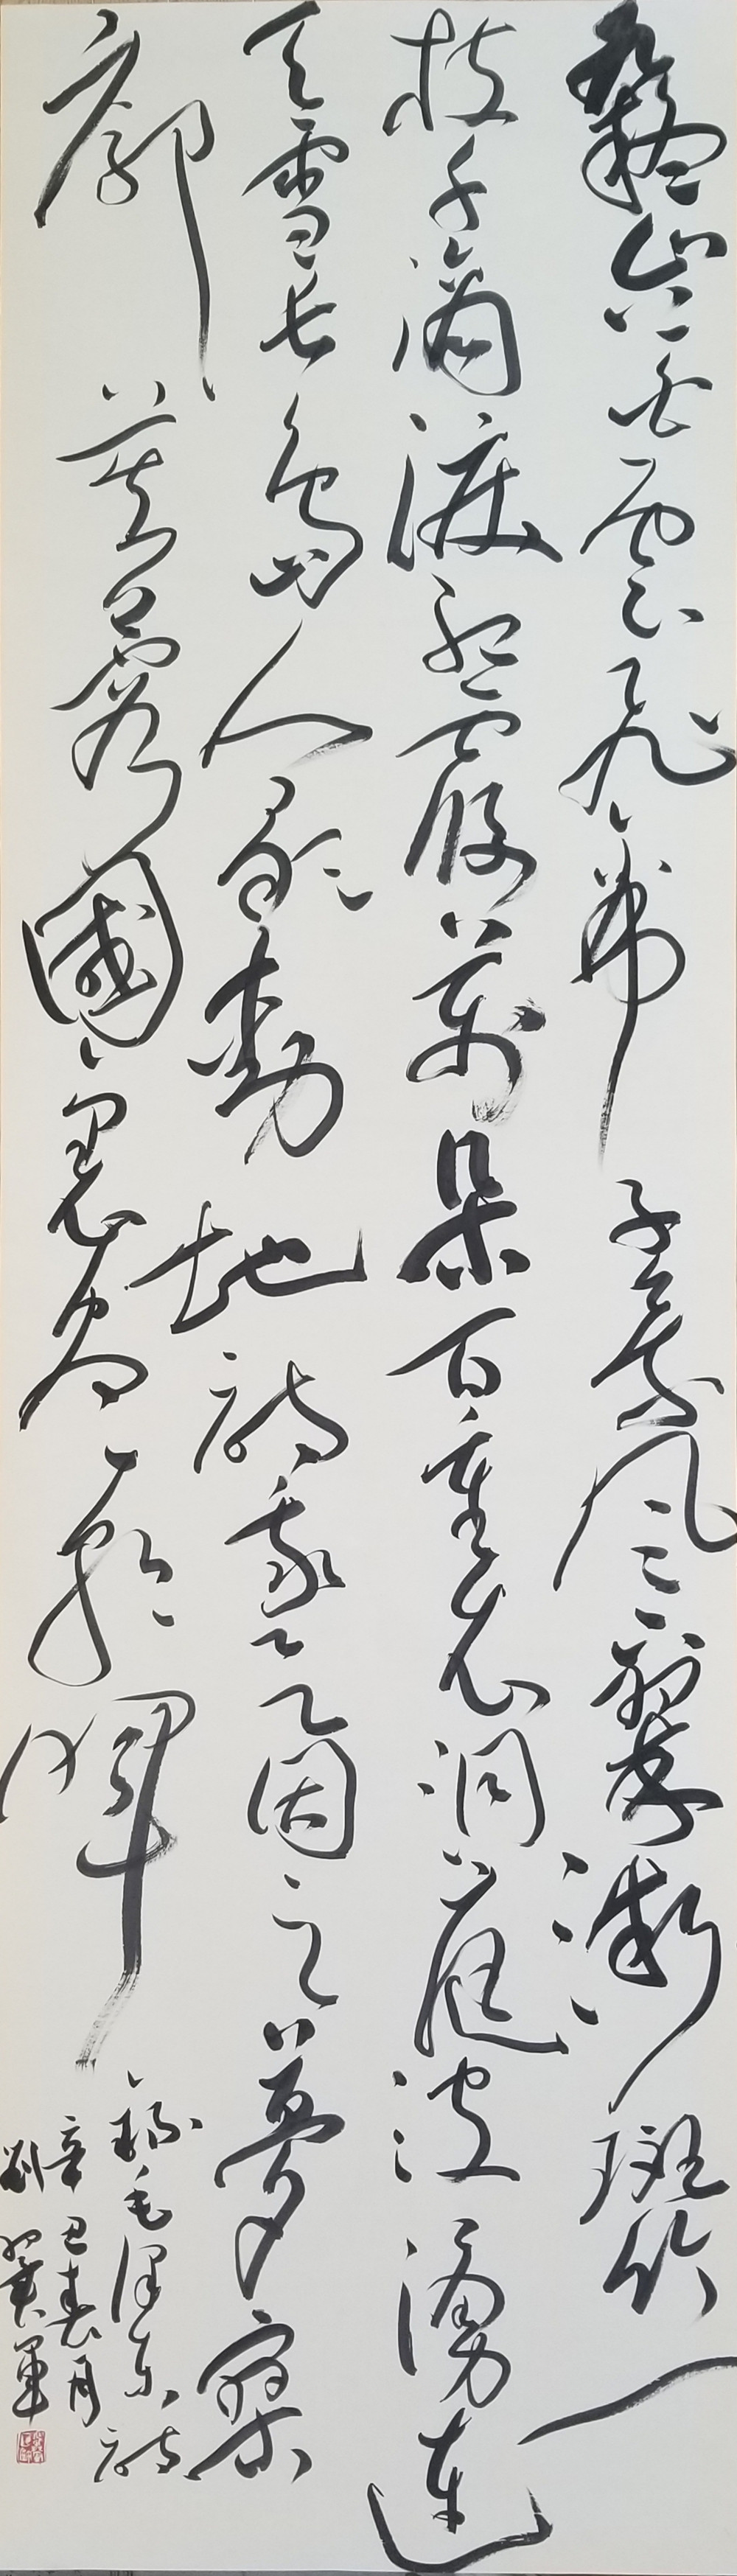 九嶷山上白雲飛帝子乘風下翠微斑竹一
枝千滴淚紅霞萬朵百重衣洞庭波湧連
天雪長島人歌動地詩我欲因之夢寥
廓芙蓉國裏盡朝暉
錄毛澤東詩
辛丑春月
劉軍